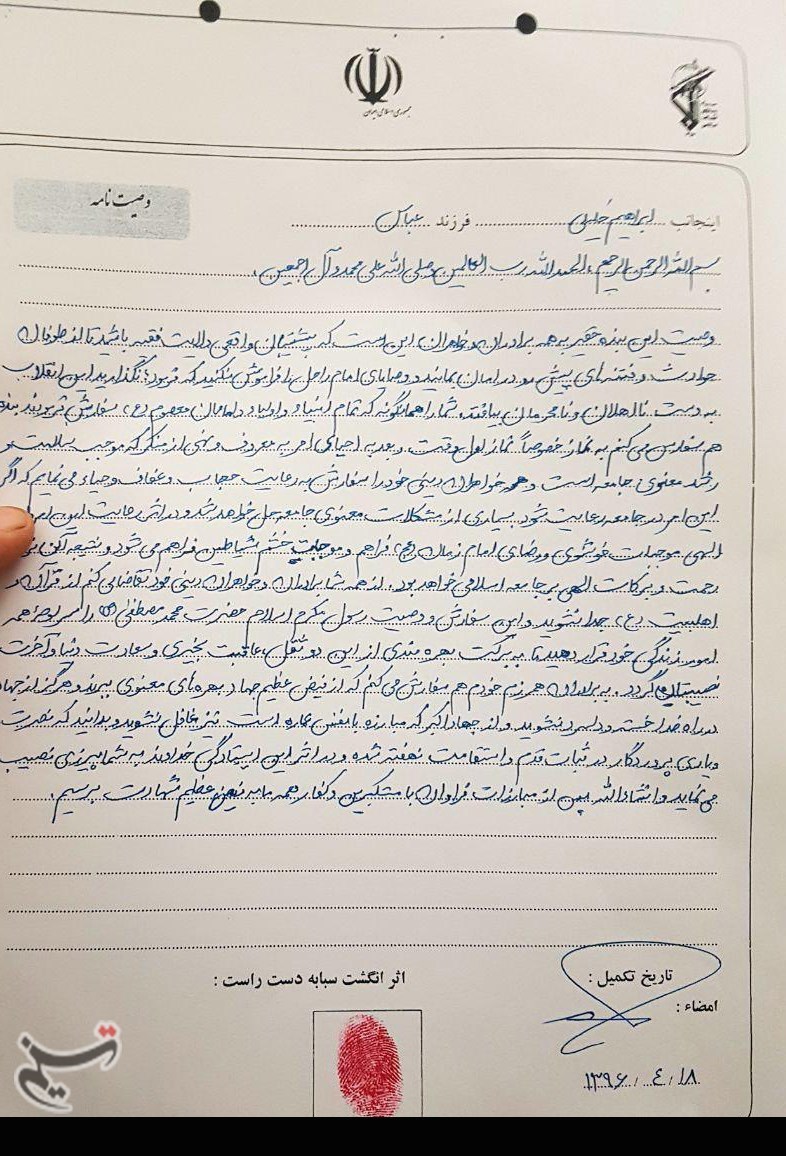 جمهوری اسلامی ایران
وصیت نامه
اینجانب ابراهیم خلیلی فرزند عباس
بسم الله الرحمن الرحیم، الحمدالله رب العالمین وصلی الله علی محمد و آل اجمعین.
وصیت این بنده حقیر به همه برادران و خواهران این است که پشتیبان واقعی ولایت فقیه باشید تا از طوفان
حوادث و فتنه های پیش رو در امان بمانید و وصایای امام راحل را فراموش نکنید که فرمود: نگذارید این انقلاب
به دست نااهلان و نامحرمان بیافتد. شما را همانگونه که تمام انبیاء و اولیاء و امامان معصوم (ع) سفارش فرمودند بنده
هم سفارش می کنم به نماز خصوصاً نماز اول وقت و بعد به احیای امر به معروف و نهی از منکر که موجب سلامت و
رشد معنوی جامعه است و همه خواهران دینی خود را سفارش به رعایت حجاب و عفاف و حیاء می نمایم که اگر
این امر در جامعه رعایت شود بسیاری از مشکلات معنوی جامعه حل خواهد شد و در اثر رعایت این
الهی موجبات خوشنودی و رضای امام زمان (عج) فراهم و موجبات خشم شیاطین فراهم می شود و نتیجه آن
رحمت و برکات الهی بر جامعه اسلامی خواهد بود. از همه شما برادران و خواهران دینی خود تقاضا می کنم از قرآن و
اهلبیت (ع) جدا نشوید و این سفارش و وصیت رسول مکرم اسلام حضرت محمد مصطفی (ص) را سرلوحه همه
امور زندگی خود قرار دهید تا به برکت بهره مندی از این دو ثقل عاقبت بخیری و سعادت دنیا و آخرت
نصیبتان گردد. به برادران همرزم خودم هم سفارش می کنم که از فیض عظیم جهاد بهره های معنوی ببرند و هرگز از جهاد
در راه خدا خسته و دلسرد نشوید و از جهاد اکبر که مبارزه با نفس عماره است نیز غافل نشوید و بدانید که نصرت
و یاری پروردگار در ثبات قدم و استقامت نهفته شده و در اثر این ایستادگی خداوند به شما پیروزی نصیب
می نماید و انشاءالله پس از مبارزات فراوان با مشرکین و کفار همه ما به فیض عظیم شهادت برسیم.
تاریخ تکمیل :
اثر انگشت سبابه دست راست :
امضاء :
۱۳۹۶/٤/۱۸
تسنیم